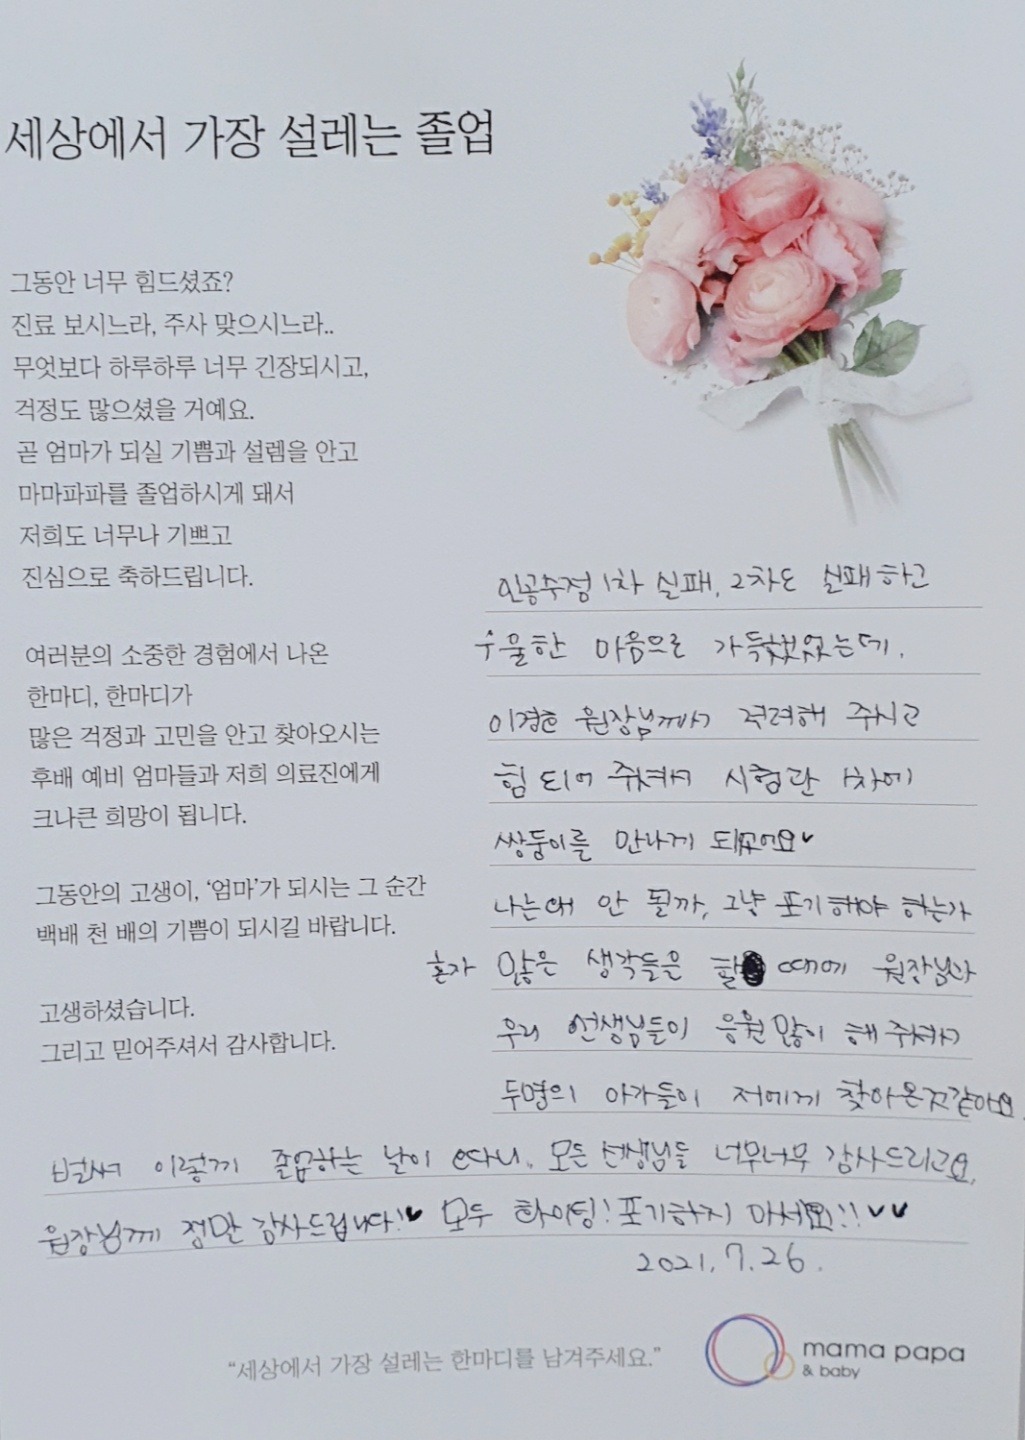 세상에서 가장 설레는 졸업
그동안 너무 힘드셨죠?
진료 보시느라, 주사 맞으시느라..
무엇보다 하루하루 너무 긴장되시고,
걱정도 많으셨을 거예요.
곧 엄마가 되실 기쁨과 설렘을 안고
마마파파를 졸업하시게 돼서
저희도 너무나 기쁘고
진심으로 축하드립니다.
여러분의 소중한 경험에서 나온
한마디, 한마디가
많은 걱정과 고민을 안고 찾아오시는
후배 예비 엄마들과 저희 의료진에게
크나큰 희망이 됩니다.
그동안의 고생이, '엄마'가 되시는 그 순간
백배 천 배의 기쁨이 되시길 바랍니다.
고생하셨습니다.
그리고 믿어주셔서 감사합니다.
인공수정 1차 실패, 2차도 실패하고
우울한 마음으로 가득찼었는데,
이경호 원장님께서 격려해 주시고
힘 되어 주셔서 시험관 1차에
쌍둥이를 만나게 되었어요♥
나는 왜 안 될까, 그냥 포기해야 하는가
혼자 많은 생각들은 할 때에 원장님과
우리 선생님들이 응원 많이 해 주셔서
두명의 아가들이 저에게 찾아온것 같아요.
벌써 이렇게 졸업하는 날이 오다니, 모든 선생님들 너무너무 감사드리고요,
원장님께 정말 감사드립니다!♥ 모두 화이팅! 포기하지 마세요!! ♥♥
2021. 7. 26.
"세상에서 가장 설레는 한마디를 남겨주세요."
mama papa
& baby